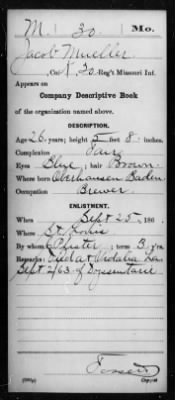 M. 30 Mo.
Jacob Mueller
, Co. K, 30 Reg't Missouri Inf.
Appears on
Company Descriptive Book
of the organization named above.
DESCRIPTION.
Age 26 years; height 5 feet 8 inches.
Complexion Fair
Eyes Blue; hair Brown
Where born Oberhausen Baden
Occupation Brewer
ENLISTMENT.
When Sept 25, 186 .
Where St. Louis
By whom Pfister; term 3 y'rs.
Remarks: Died at Vidalia La.
Sept 2/63 of Dyssentarie
Copyist.